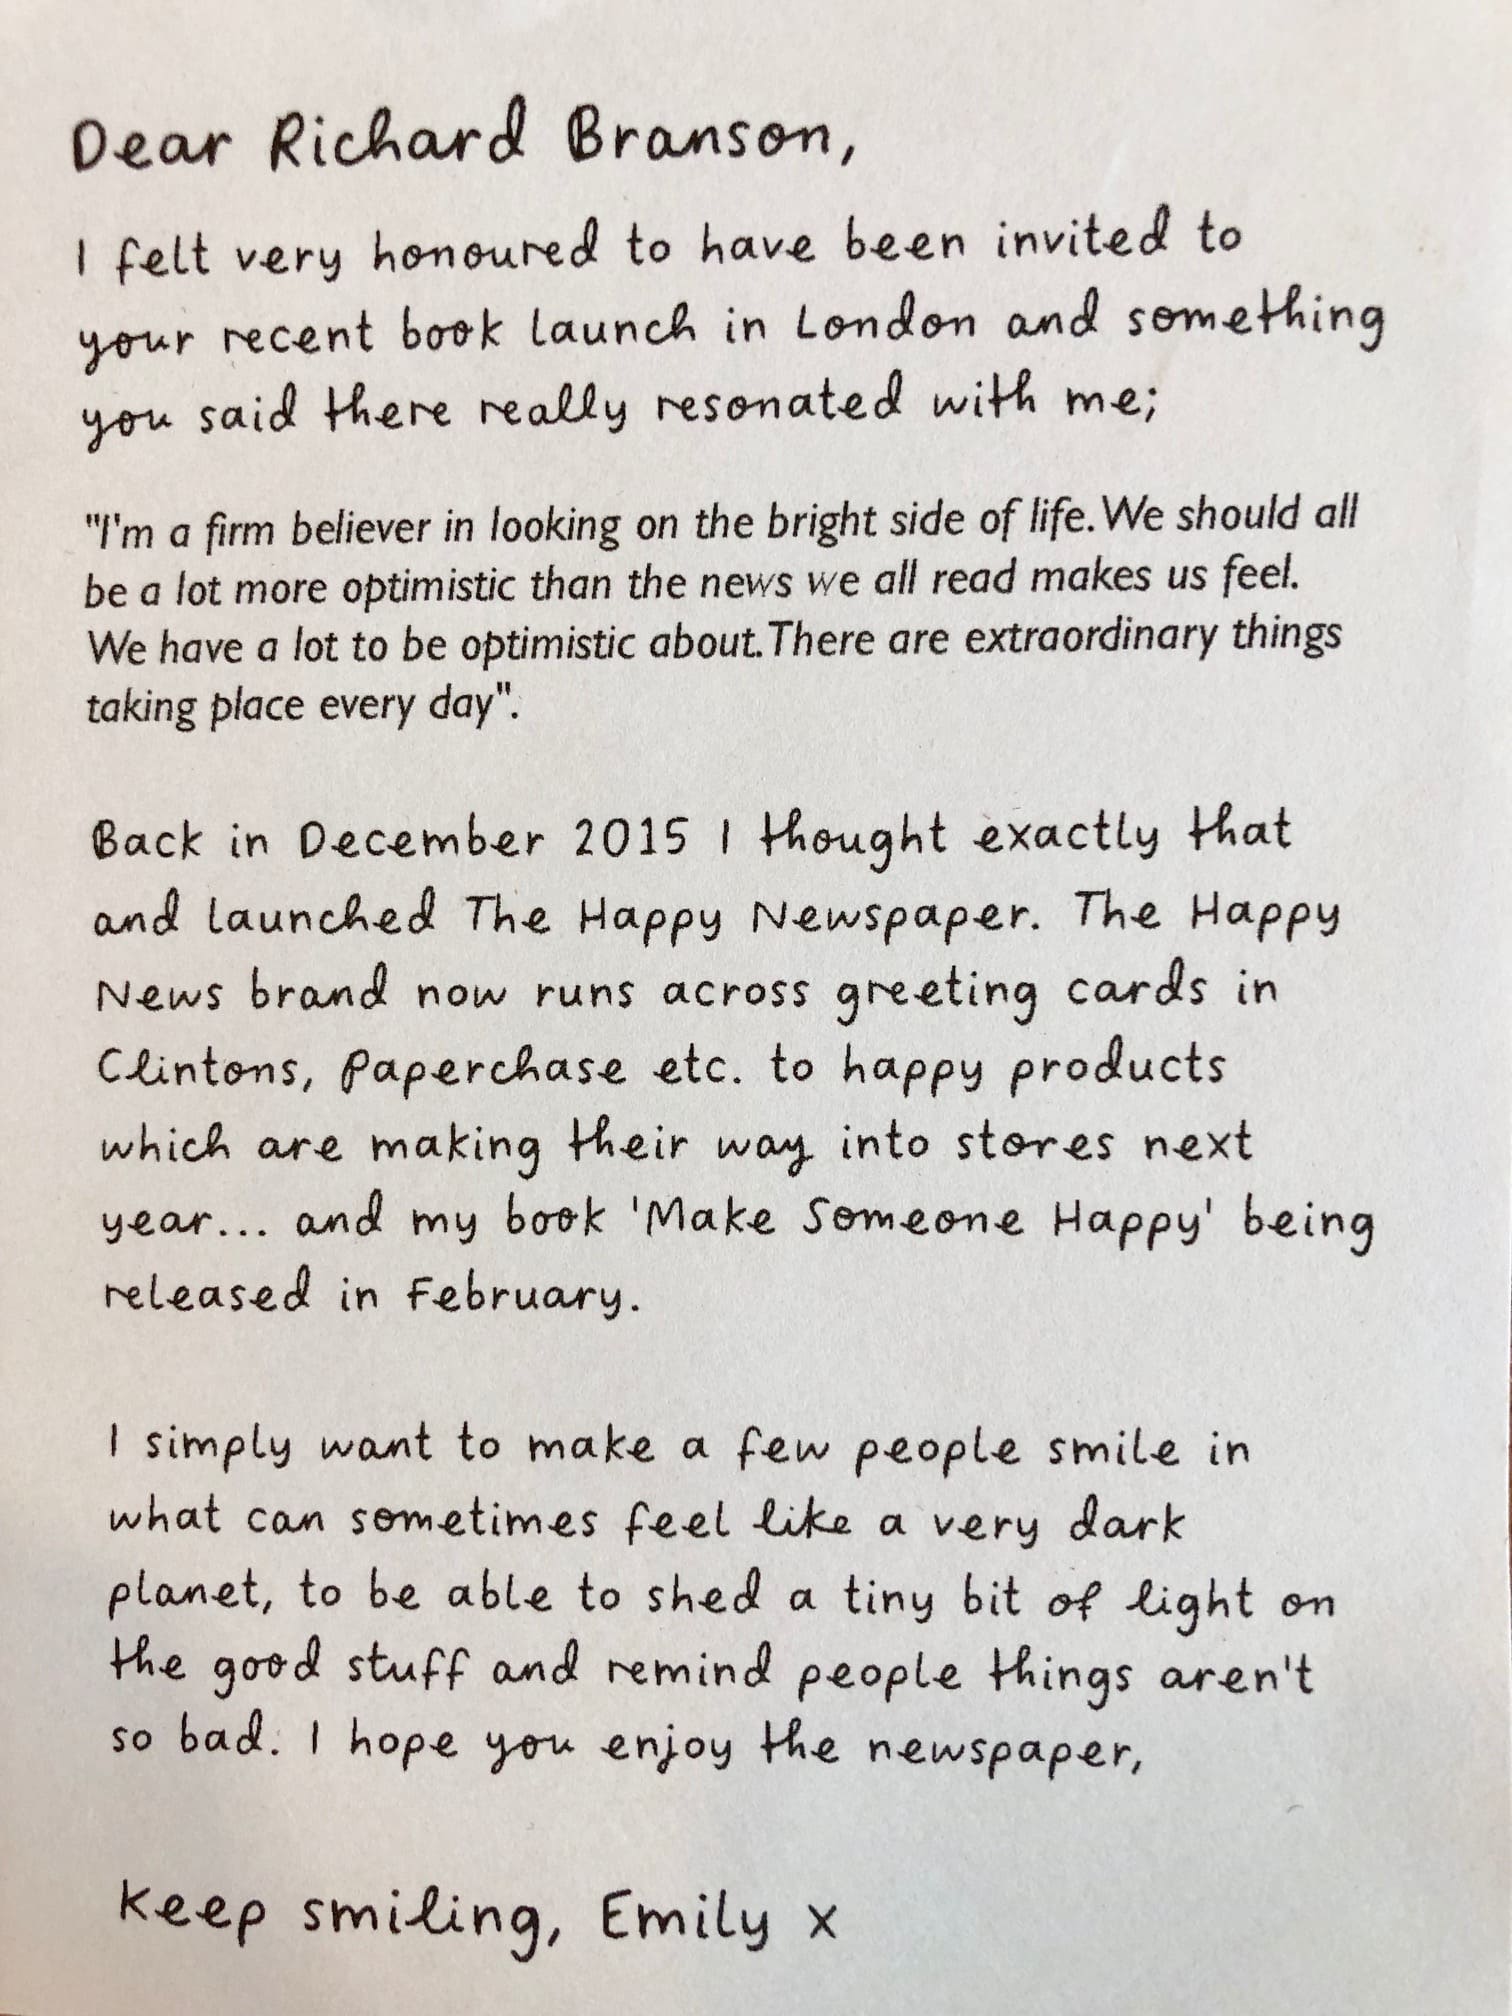 Dear Richard Branson,
I felt very honoured to have been invited to
your recent book launch in London and something
you said there really resonated with me;
"I'm a firm believer in looking on the bright side of life. We should all
be a lot more optimistic than the news we all read makes us feel.
We have a lot to be optimistic about. There are extraordinary things
taking place every day".
Back in December 2015 I thought exactly that
and launched The Happy Newspaper. The Happy
News brand now runs across greeting cards in
Clintons, Paperchase etc. to happy products
which are making their way into stores next
year... and my book 'Make Someone Happy' being
released in February.
I simply want to make a few people smile in
what can sometimes feel like a very dark
planet, to be able to shed a tiny bit of light on
the good stuff and remind people things aren't
so bad. I hope you enjoy the newspaper,
Keep smiling, Emily x